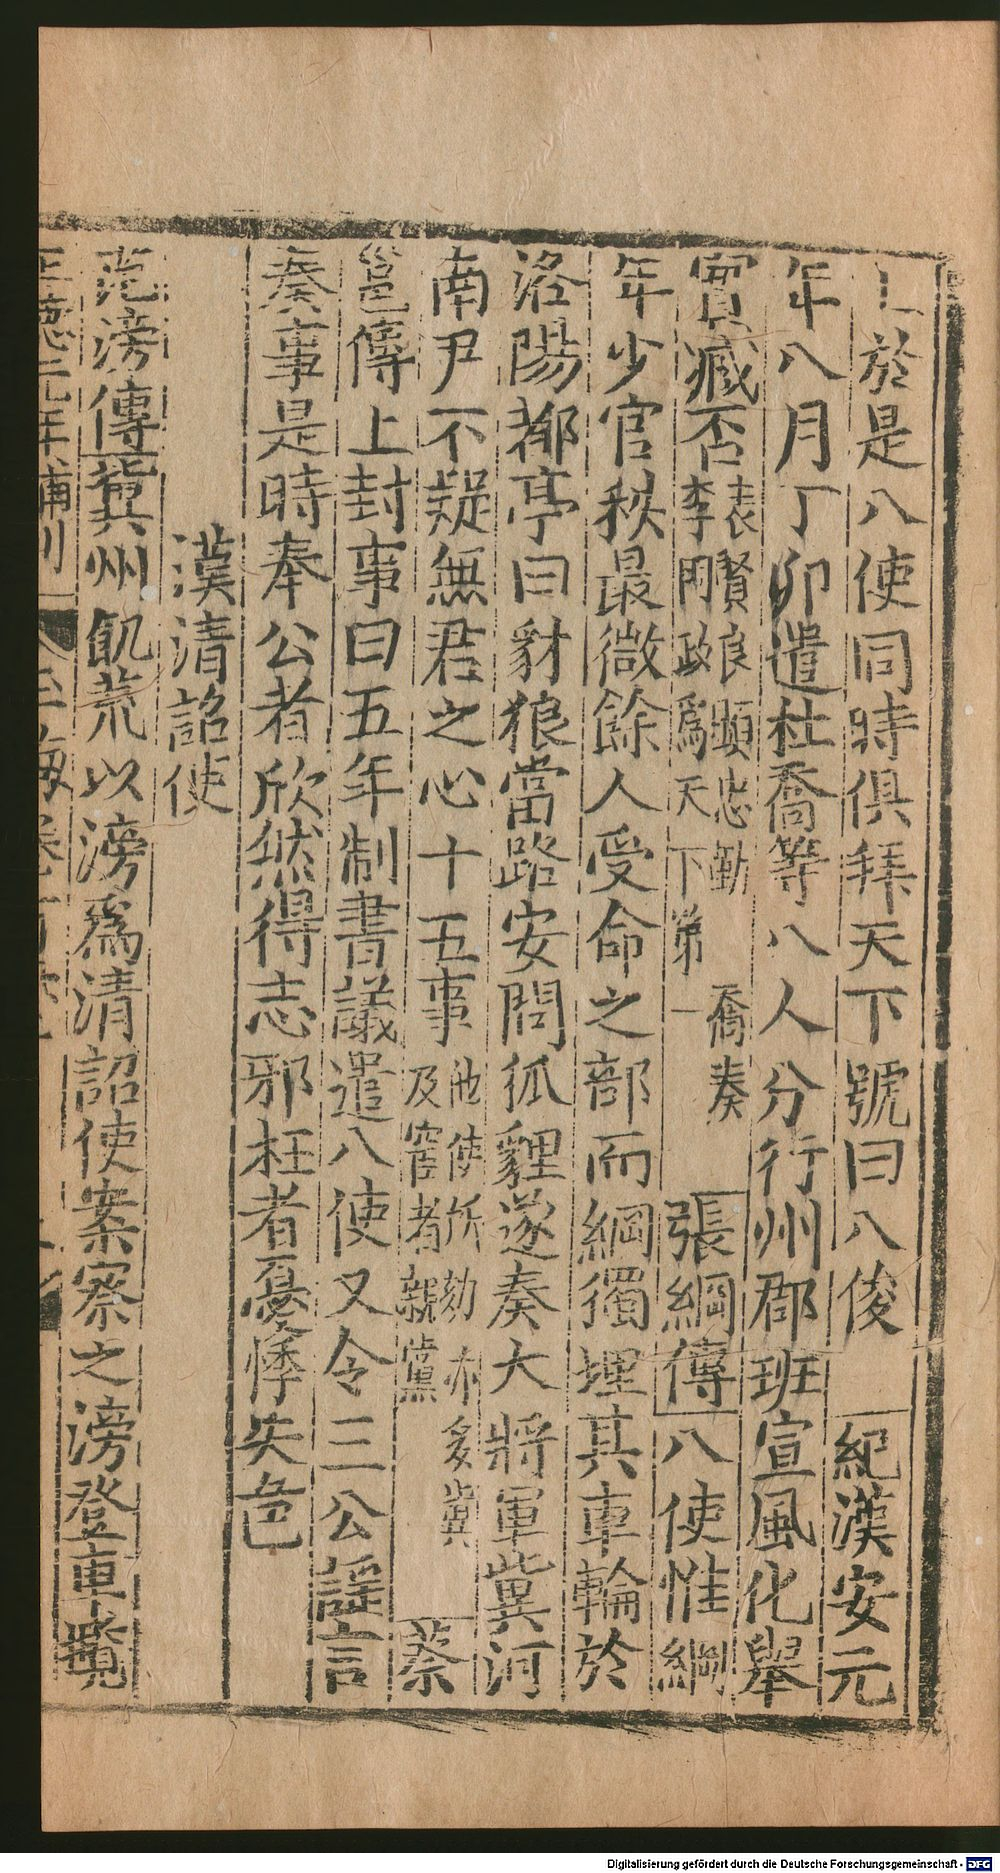 上於是八使同時俱拜天下號曰八俊 紀漢安元
年八月丁卯遣杜喬等八人分行州郡班宣風化舉
實臧否表賢良顯忠勤喬奏李固政爲天下第一 張綱傳八使惟綱
年少官秩最微餘人受命之部而綱獨埋其車輪於
洛陽都亭曰豺狼當路安問狐貍遂奏大將軍冀河
南尹不疑無君之心十五事他使所劾亦多冀及宦者親黨 蔡
邕傳上封事曰五年制書議遣八使又令三公謡言
奏事是時奉公者欣然得志邪枉者憂悸失色
漢清詔使
范滂傳冀州飢荒以滂爲清詔使案察之滂登車覽
正德元年補刊 玉海卷
Digitalisierung gefördert durch die Deutsche Forschungsgemeinschaft - DFG